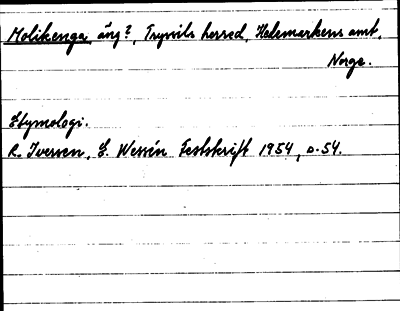 Molikenga, äng?, Trysils herred, Hedemarkens amt,
Norge.
Etymologi.
R. Iversen, E. Wessén Festskrift 1954, s. 54.